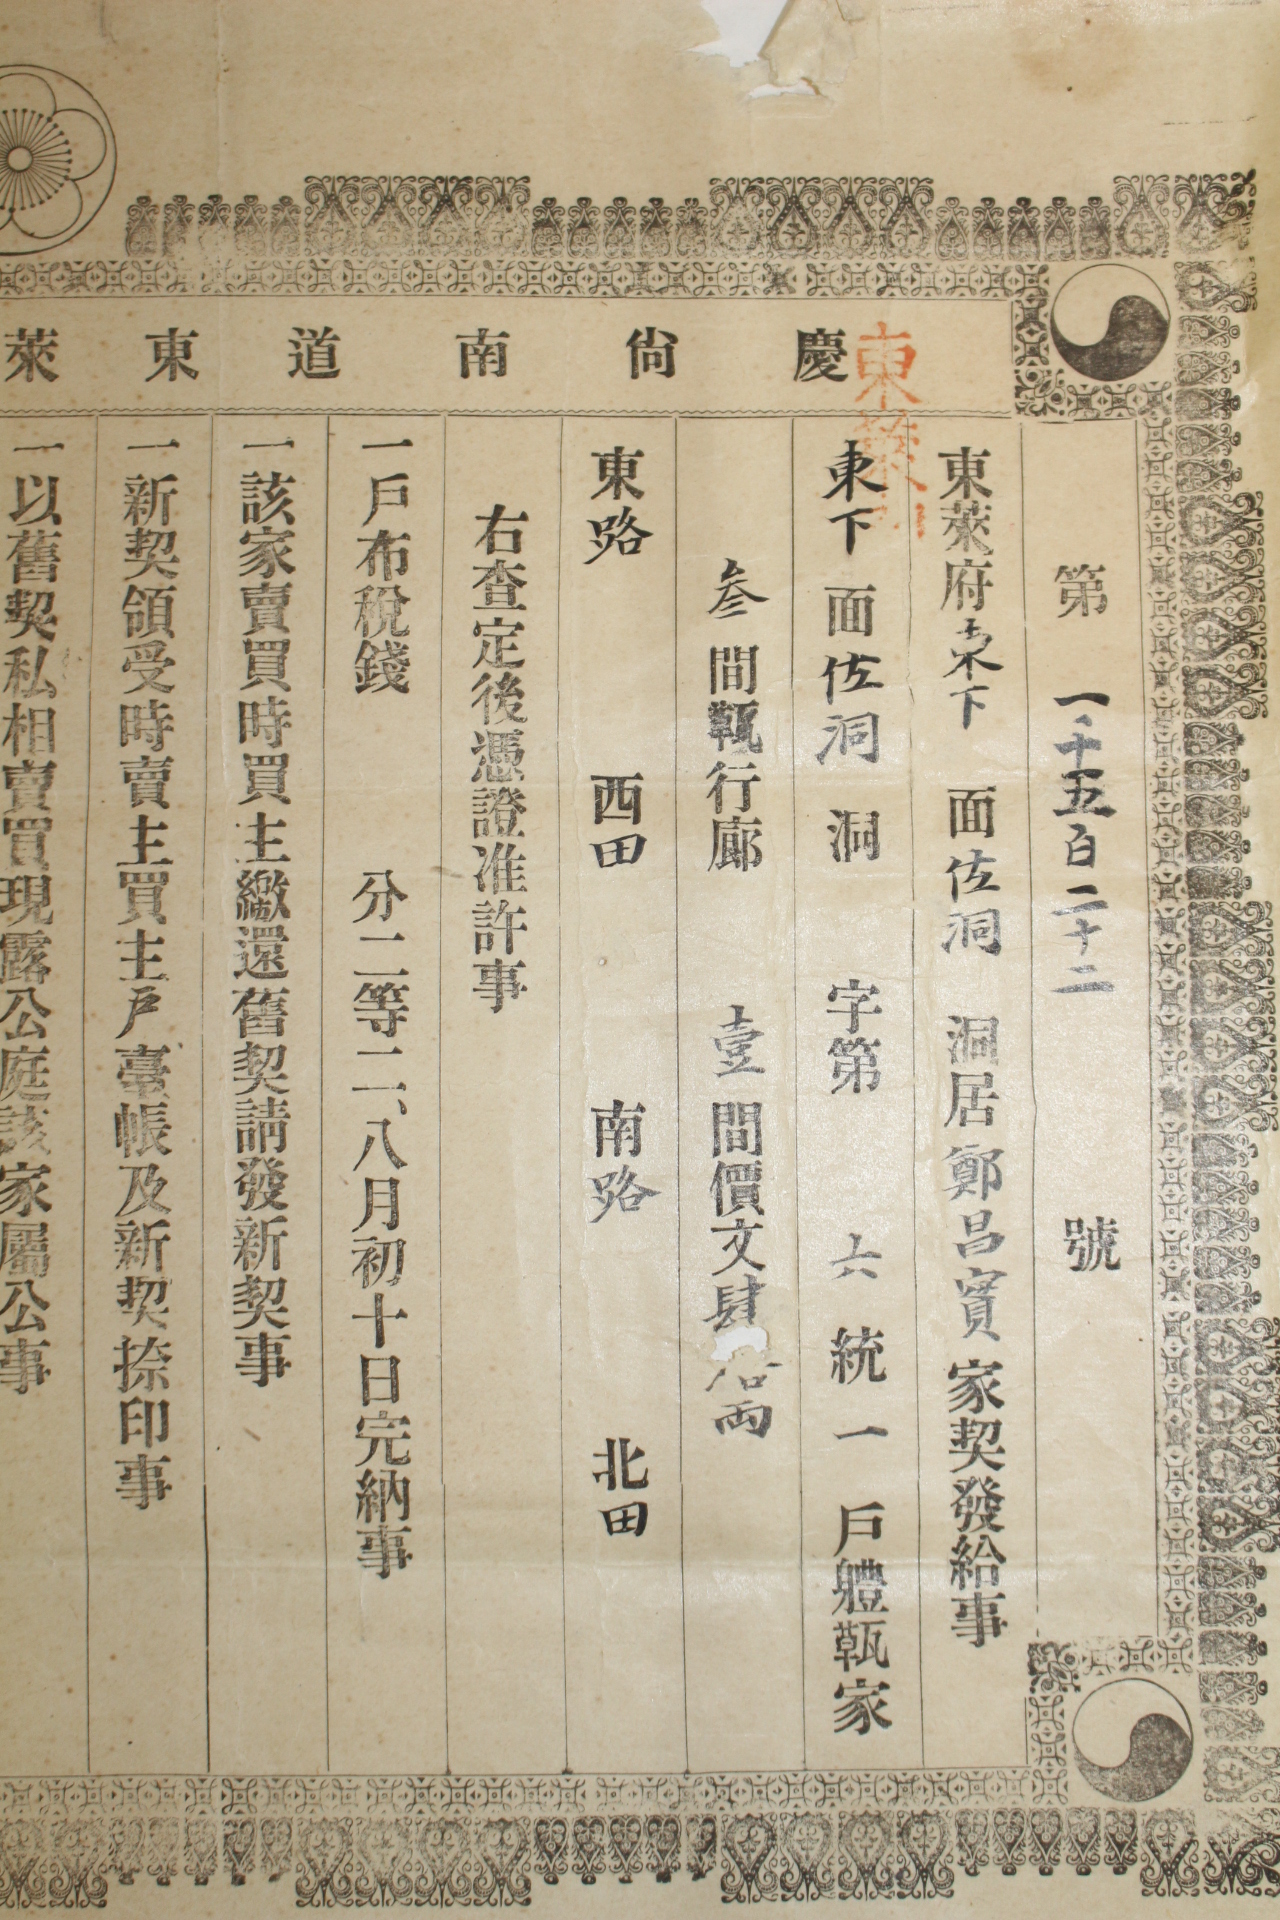 慶尙南道東萊
東萊
第一千五百二十二號
東萊府東下面佐洞洞居鄭昌實家契發給事
東下面佐洞洞字第六統一戶體家
參間行廊壹間價文肆兩
東路西田南路北田
右查定後憑證准許事
一戶布稅錢分二等二、八月初十日完納事
一該家賣買時買主繳還舊契請發新契事
一新契領受時賣主買主戶臺帳及新契捺印事
一以舊契私相賣買現露公庭該家屬公事